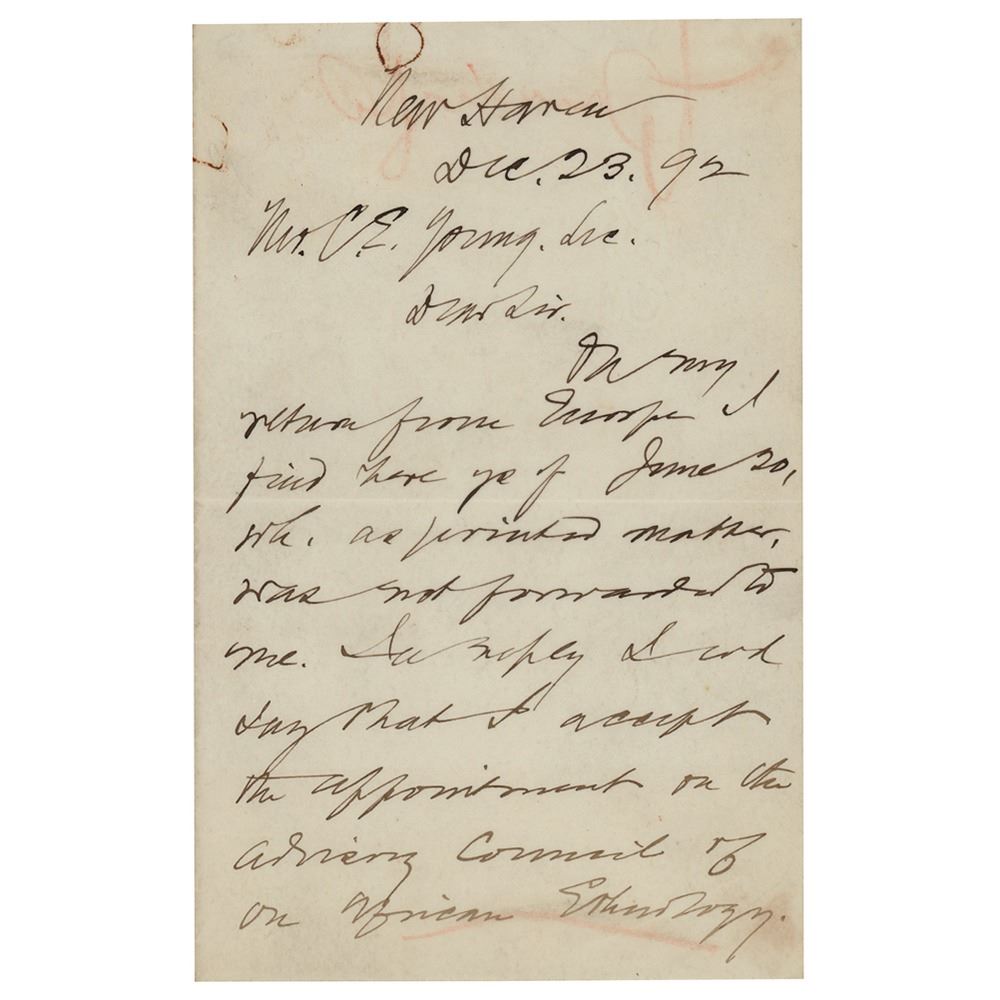 New Haven
Dec. 23. 92
Mr. C. E. Young. Sec.
Dear Sir.
On my
return from Europe I
find here ys of June 20,
wh. as printed matter,
was not forwarded to
me. In reply I wd
say that I accept
the appointment on the
advisory Council of
on African Ethnology.